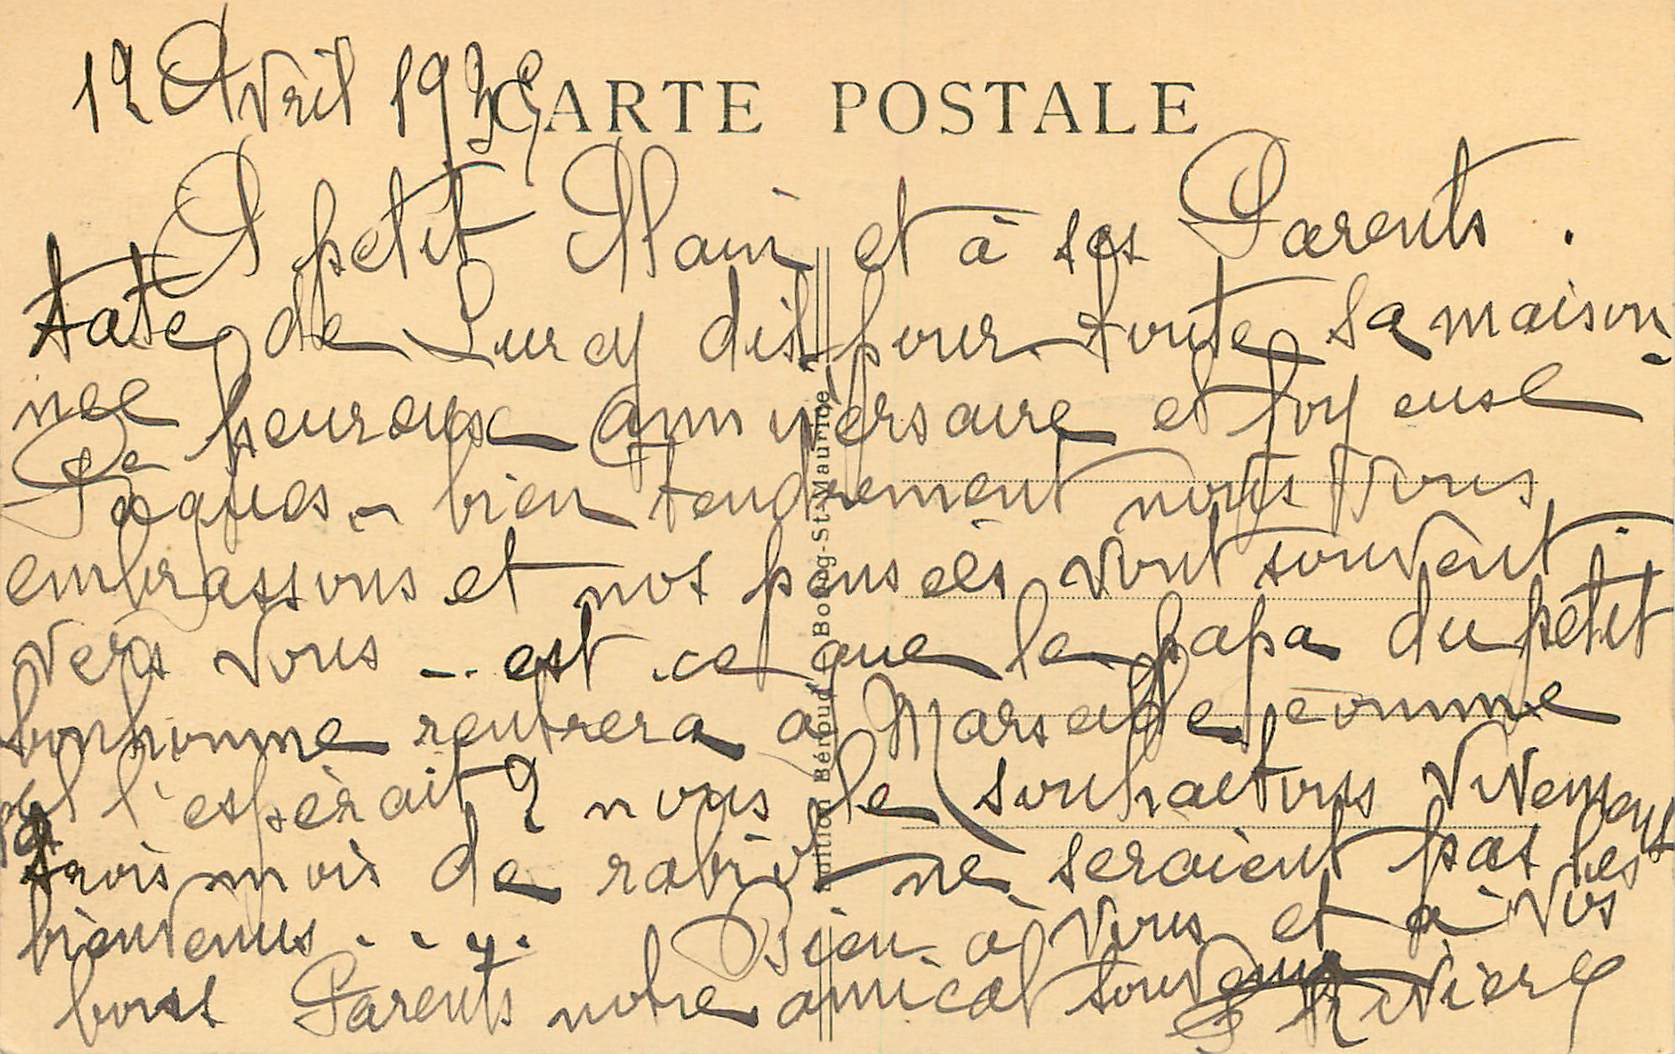 12 Avril 1939
CARTE POSTALE
A petit Alain et à ses Parents.
tate de Lurcy dit pour toute sa maison
née heureux anniversaire et joyeuse
Pâques - bien tendrement nous vous
embrassons et nos pensées vont souvent
vers vous - .. est ce que le papa du petit
bonhomme rentrera à Marseille comme
il l'espèrait ? nous le souhaitons vivement
trois mois de rabiot ne seraient pas les
bienvenus . . . . Bien à vous et à vos
bons Parents notre amical souvenir
Rivière
Edition Béroud - Bourg-St-Maurice